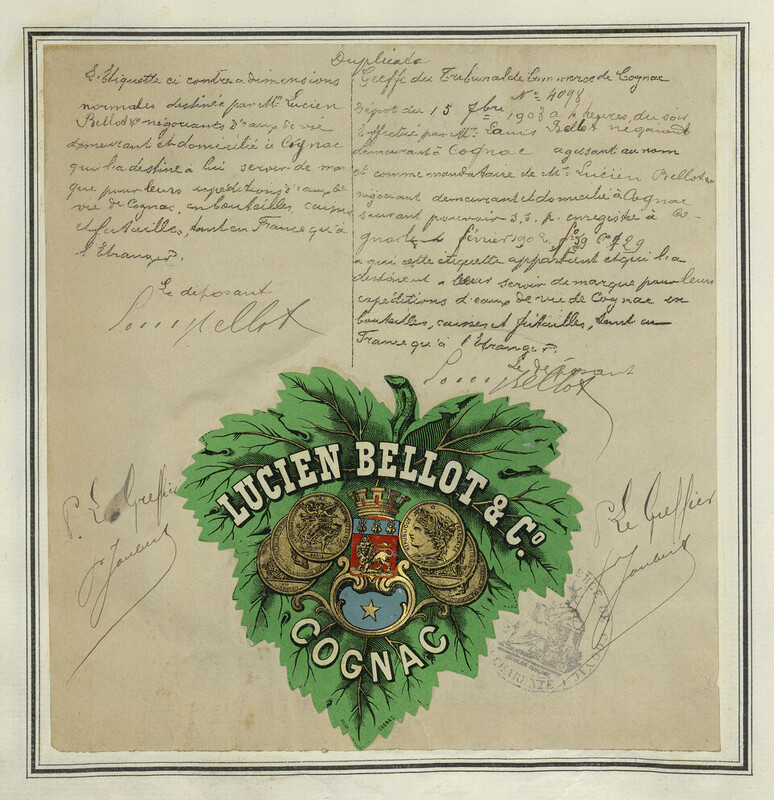 Duplicata
L'Etiquette ci contre a dimensions
normales destinée par Mr Lucien
Bellot & négociants d'eaux de vie
demeurant et domicilié à Cognac
qui la destine à lui servir de mar
que pour leurs expéditions d'eaux de
vie de Cognac, en bouteilles, caisses
et futailles, tant en France qu'à
l'Etranger.
Le déposant
Louis Bellot
Greffe du Tribunal de Commerce de Cognac
No 4098
Dépôt du 15 7bre 1903 à 4 heures du soir
Effectué par Mr Louis Bellot négociant
demeurant à Cognac agissant au nom
et comme mandataire de Mr Lucien Bellot
négociant demeurant et domicilié à Cognac
suivant pouvoir s.s.p. enregistré à Co-
gnac le février 190 fo 39 Co 729
a qui cette étiquette appartient et qui la
destinent a leur servir de marque pour leurs
expéditions d'eaux de vie de Cognac en
bouteilles, caisses et futailles, tant en
France qu'à l'Etranger.
Le déposant
Louis Bellot
LUCIEN BELLOT & Co.
COGNAC
P. Le Greffier
P. Le Greffier
CHARENTE